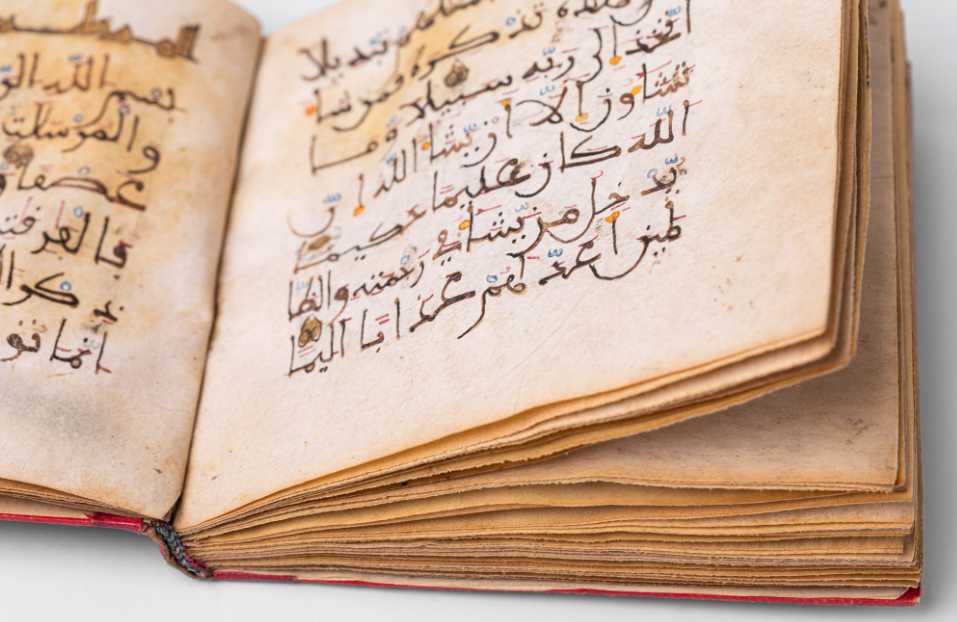 تبديلا
تذكرة فمن شا
اتخذ الى ربه سبيلا وما
تشاون الا ان يشا الله ان
الله كان عليما حكيما
يدخل من يشا في رحمته والظا
لمين اعد لهم عذابا اليما
بسم الله
والمرسلت
عصفا
فالفرقت
ذكرا
انما تو